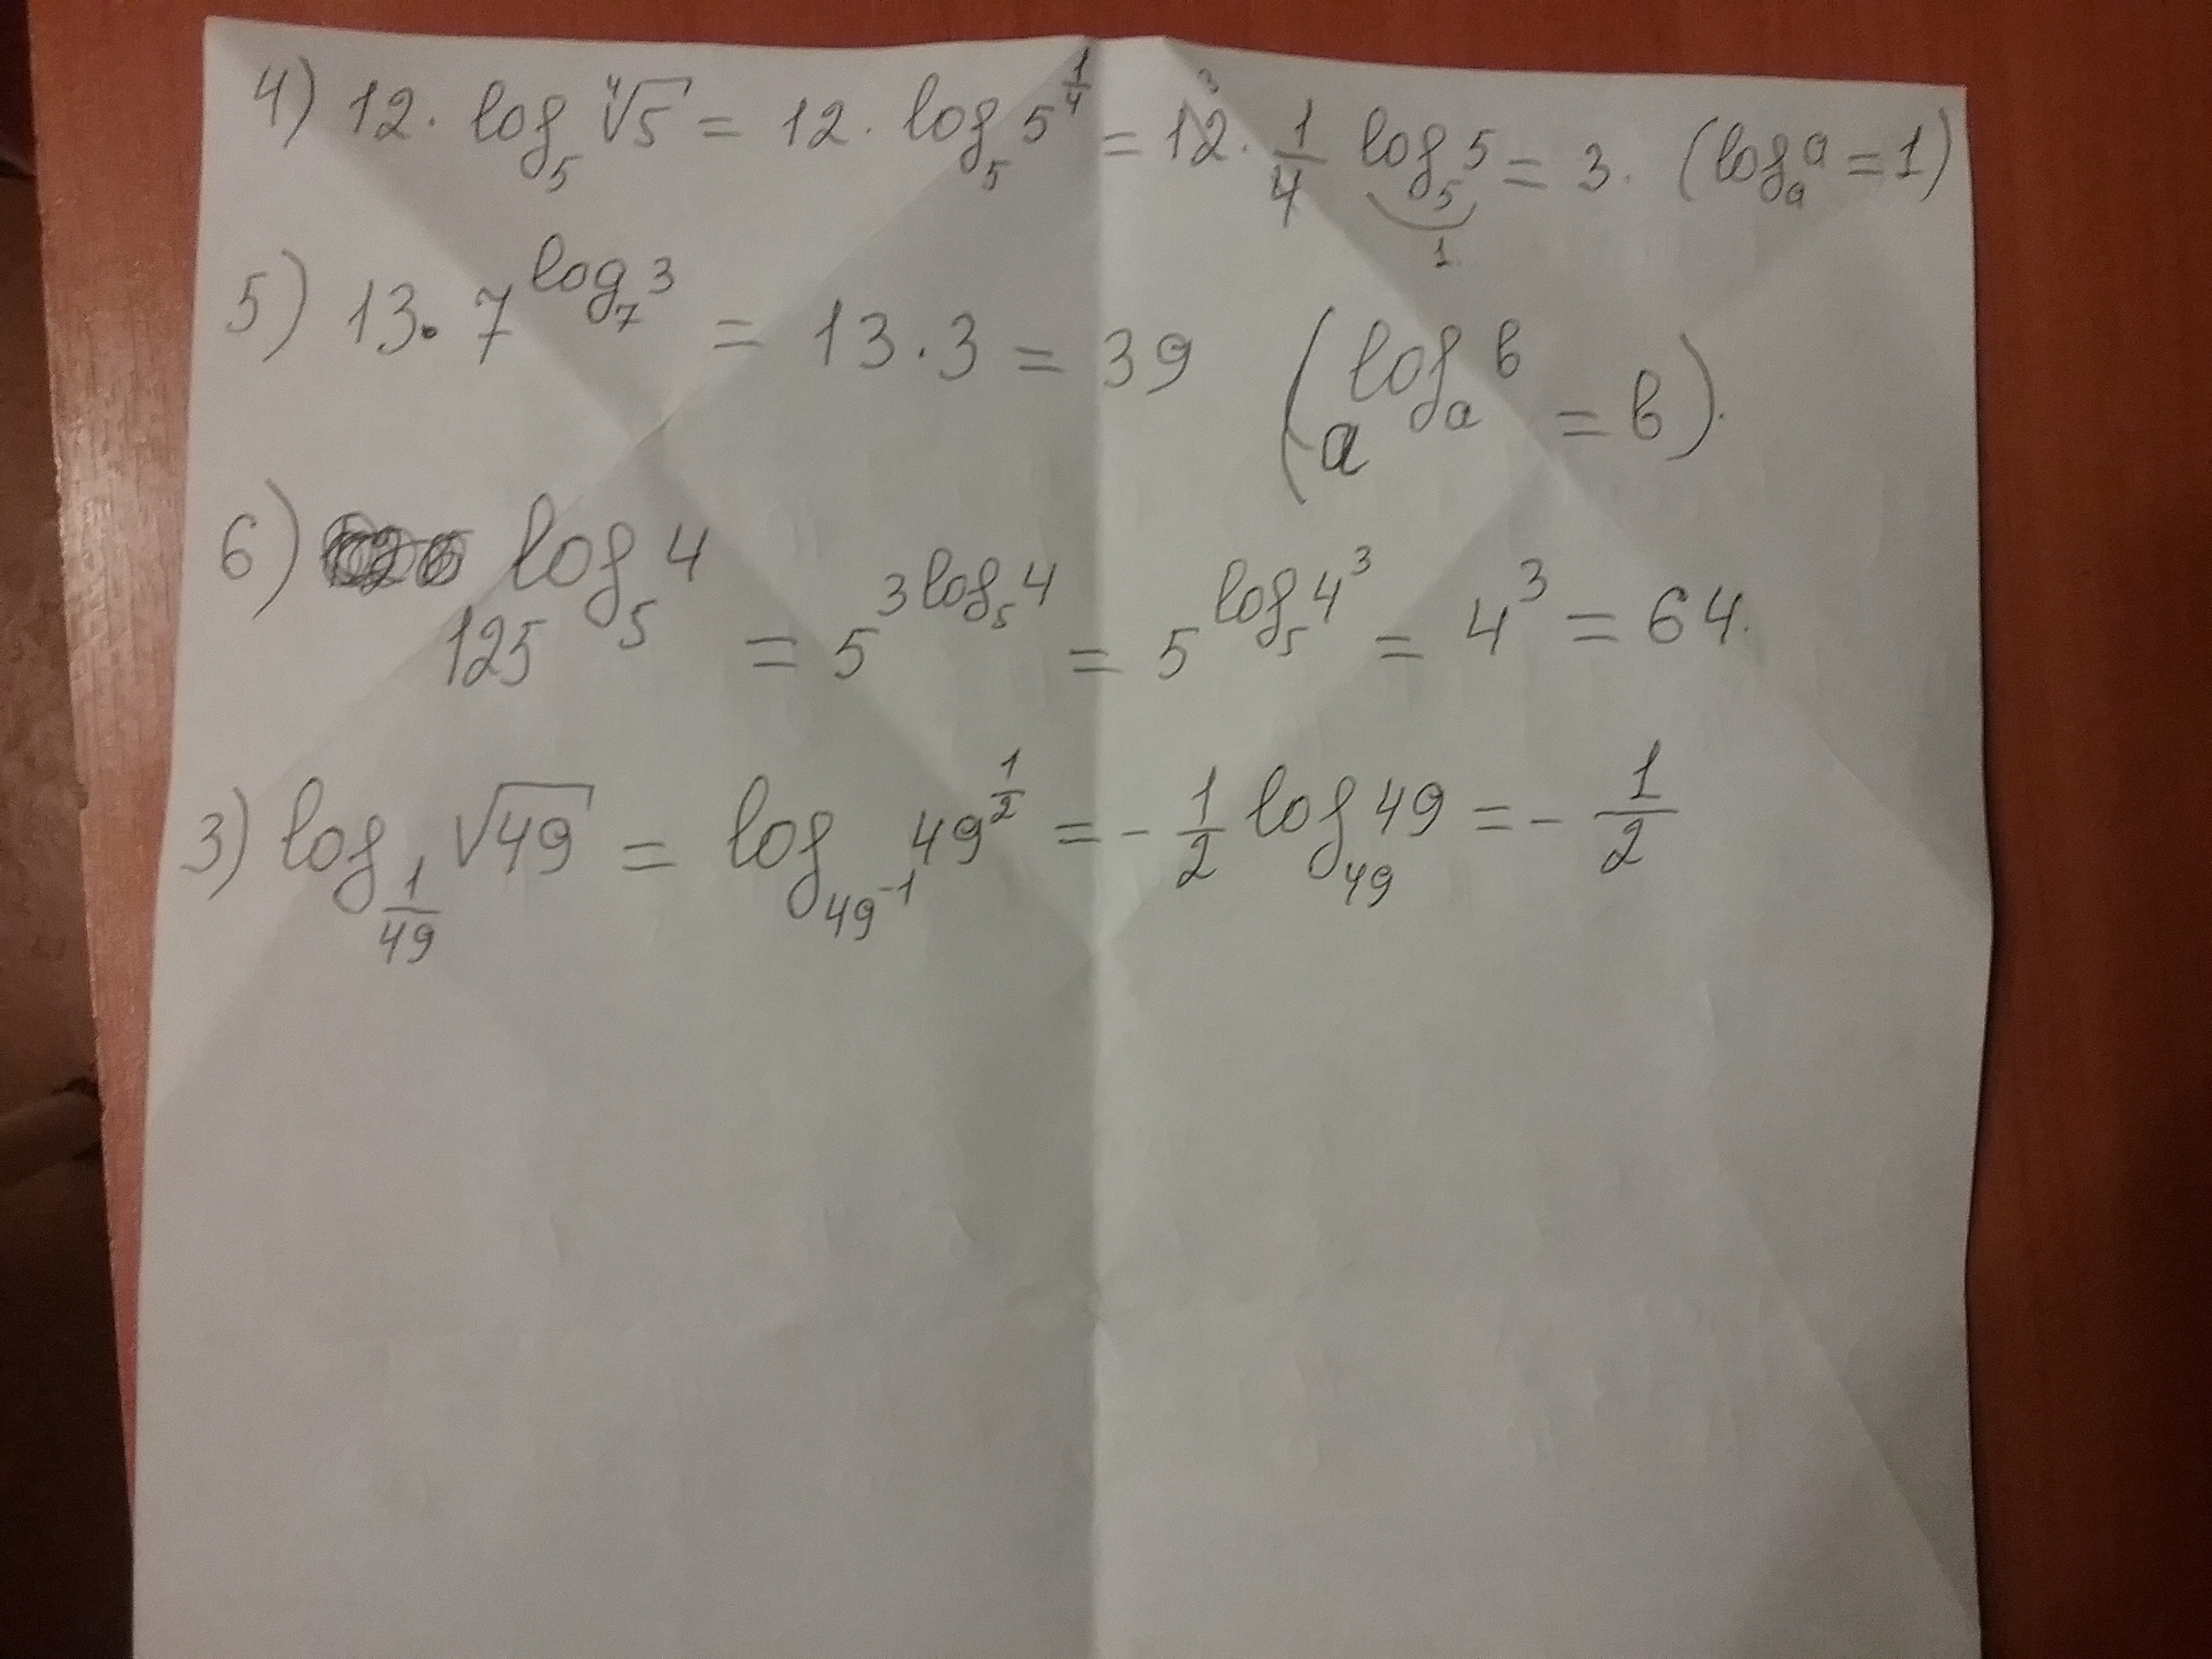 4) 12 · log₅ ⁴√5 = 12 · log₅ 5^(1/4) = 12³ · 1/4 log₅ 5 = 3. (logₐ a = 1)
1
5) 13 · 7^(log₇ 3) = 13 · 3 = 39 (a^(logₐ b) = b).
6) 125^(log₅ 4) = 5^(3 log₅ 4) = 5^(log₅ 4³) = 4³ = 64.
3) log_(1/49) √49 = log_(49⁻¹) 49^(1/2) = - 1/2 log₄₉ 49 = - 1/2